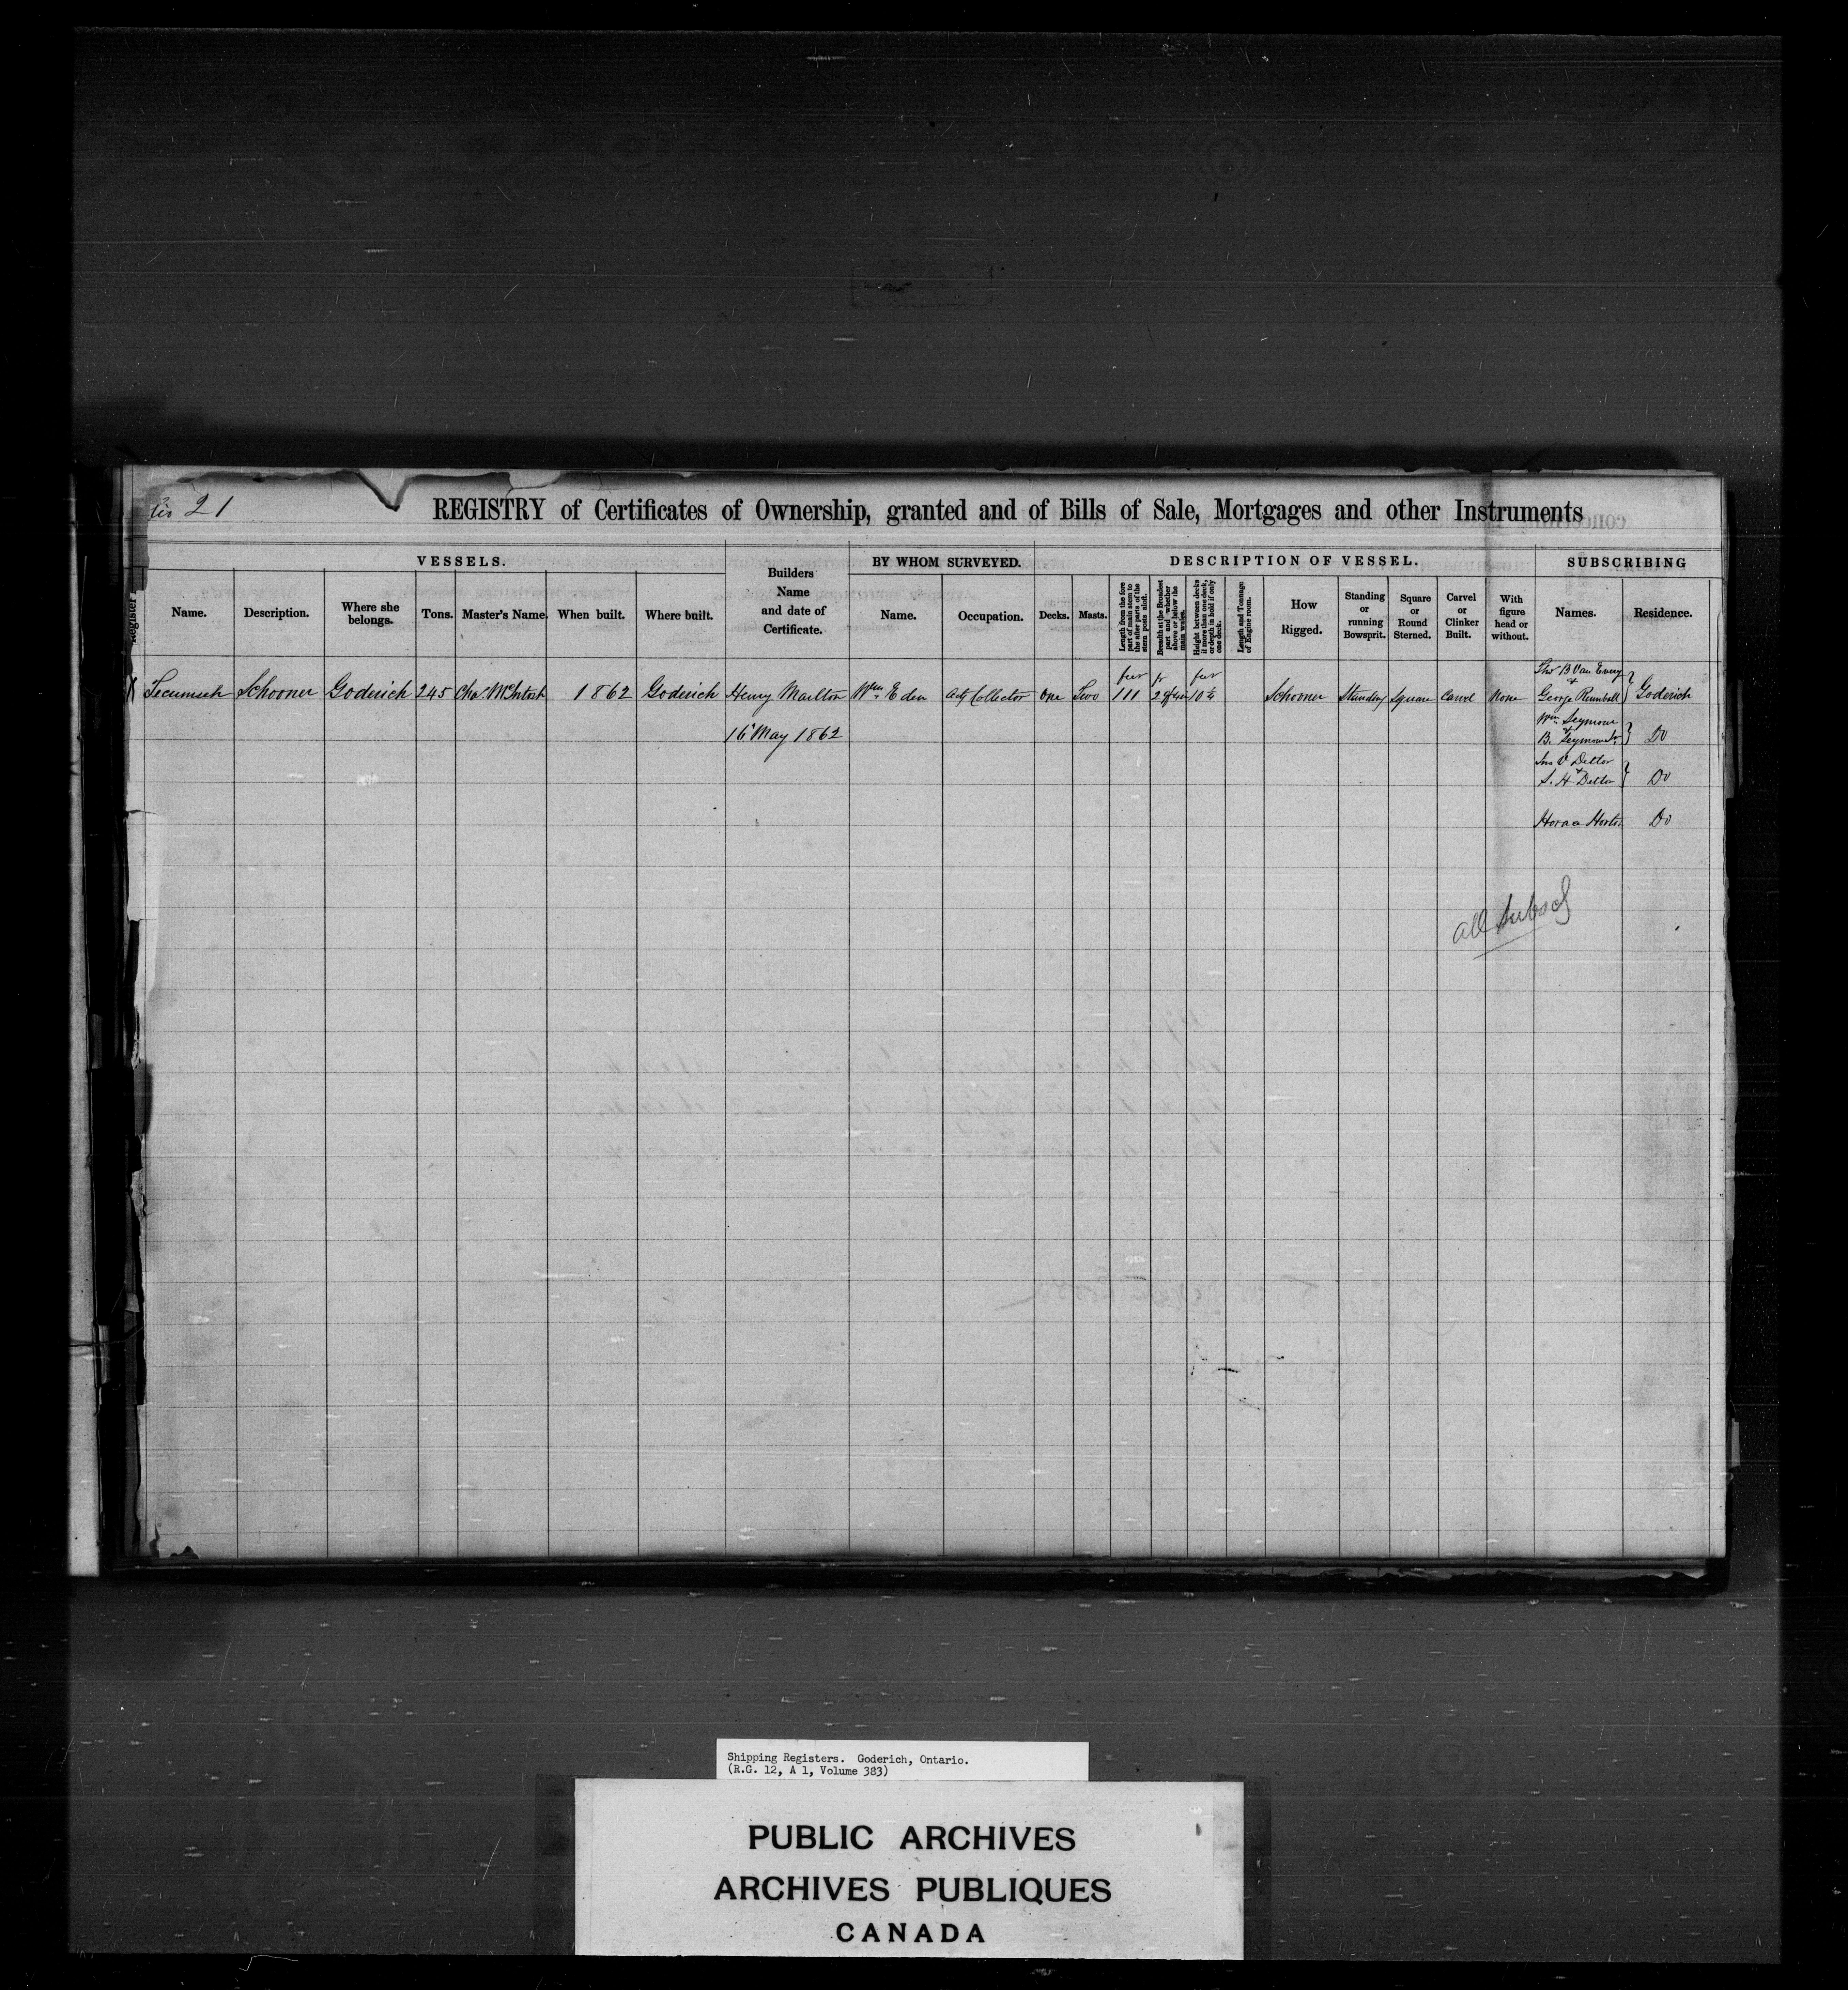 21
REGISTRY of Certificates of Ownership, granted and of Bills of Sale, Mortgages and other Instruments
VESSELS.
BY WHOM SURVEYED.
DESCRIPTION OF VESSEL.
SUBSCRIBING
Register
Name.
Description.
Where she
belongs.
Tons.
Master's Name.
When built.
Where built.
Builders
Name
and date of
Certificate.
Name.
Occupation.
Decks.
Masts.
Length from the fore
part of main stem to
the after parts of the
stern posts aloft.
Breadth at the Broadest
part and whether
above or below the
main wales.
Height between decks
if more than one deck,
or depth in hold if only
one deck.
Length and Tonnage
of Engine room.
How
Rigged.
Standing
or
running
Bowsprit.
Square
or
Round
Sterned.
Carvel
or
Clinker
Built.
With
figure
head or
without.
Names.
Residence.
X Tecumseh Schooner Goderich 245 Chas. McIntosh 1862 Goderich Henry Marlton Wm. Eden Actg Collector One Two 111 10½ Schooner Standing Square Carvel None
16 May 1862
Thos B Van Every
&
George Rumball } Goderich
Wm. Seymour
&
B. Seymour } Do
Jno V Detlor
&
S. H Detlor } Do
Horace Horton Do
all
Shipping Registers. Goderich, Ontario.
(R.G. 12, A 1, Volume 383)
PUBLIC ARCHIVES
ARCHIVES PUBLIQUES
CANADA